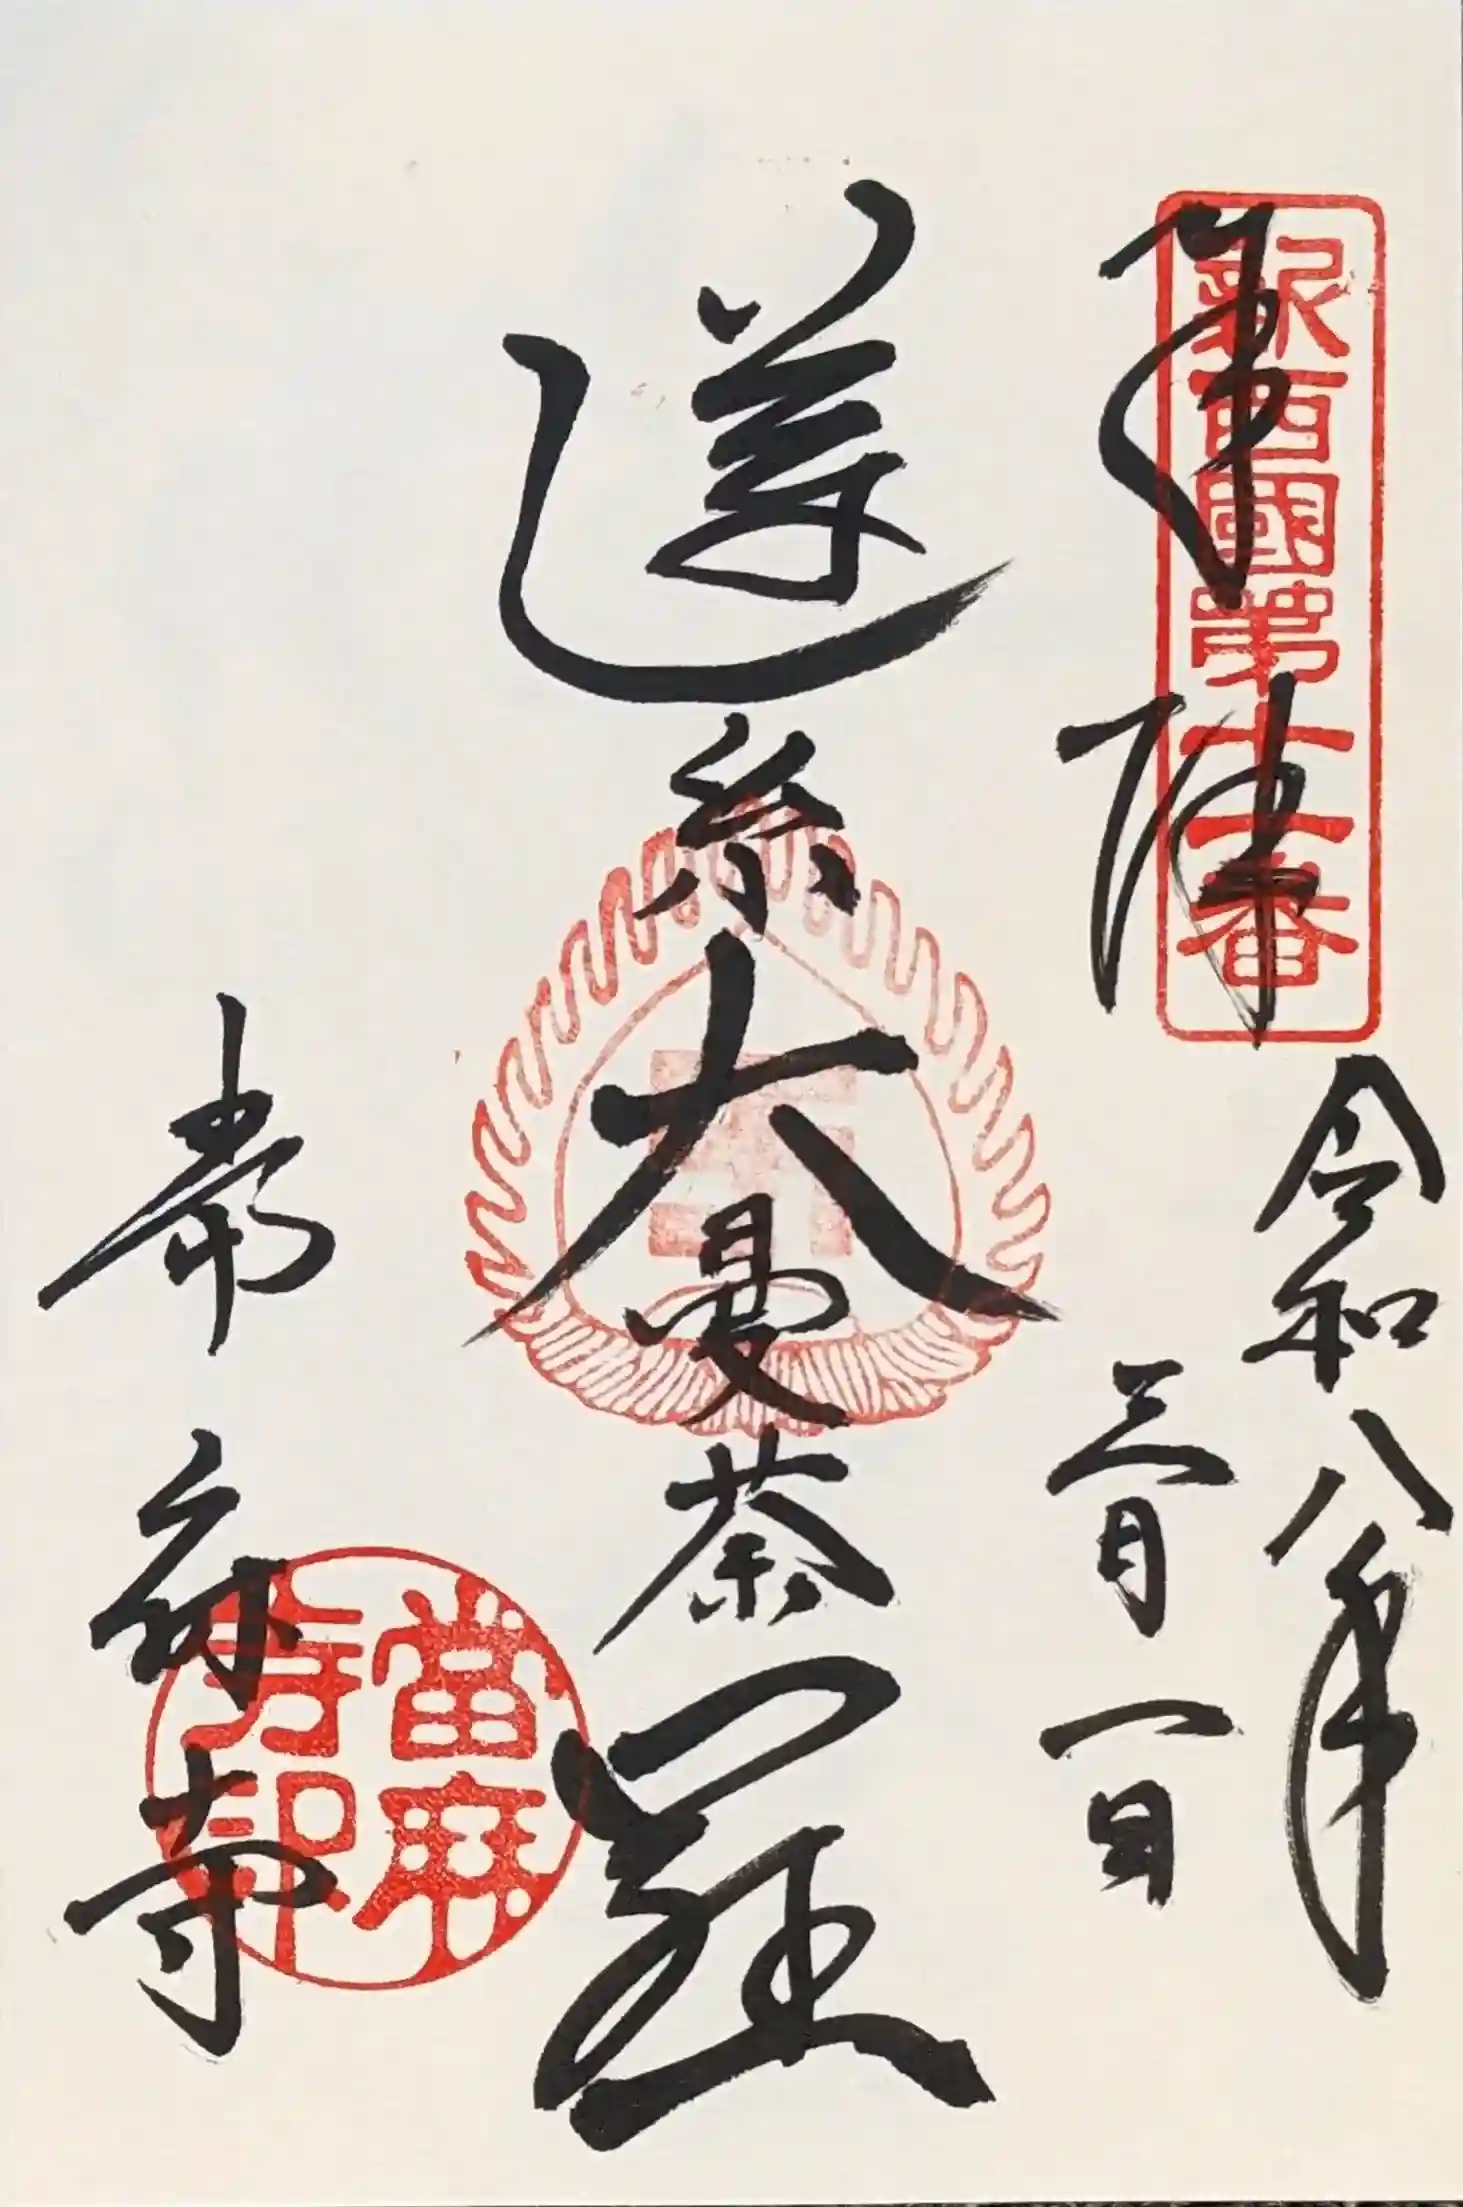 奉拝
新西國第十一番
令和八年
三月一日
蓮糸大曼荼羅
當麻寺
當麻
寺印